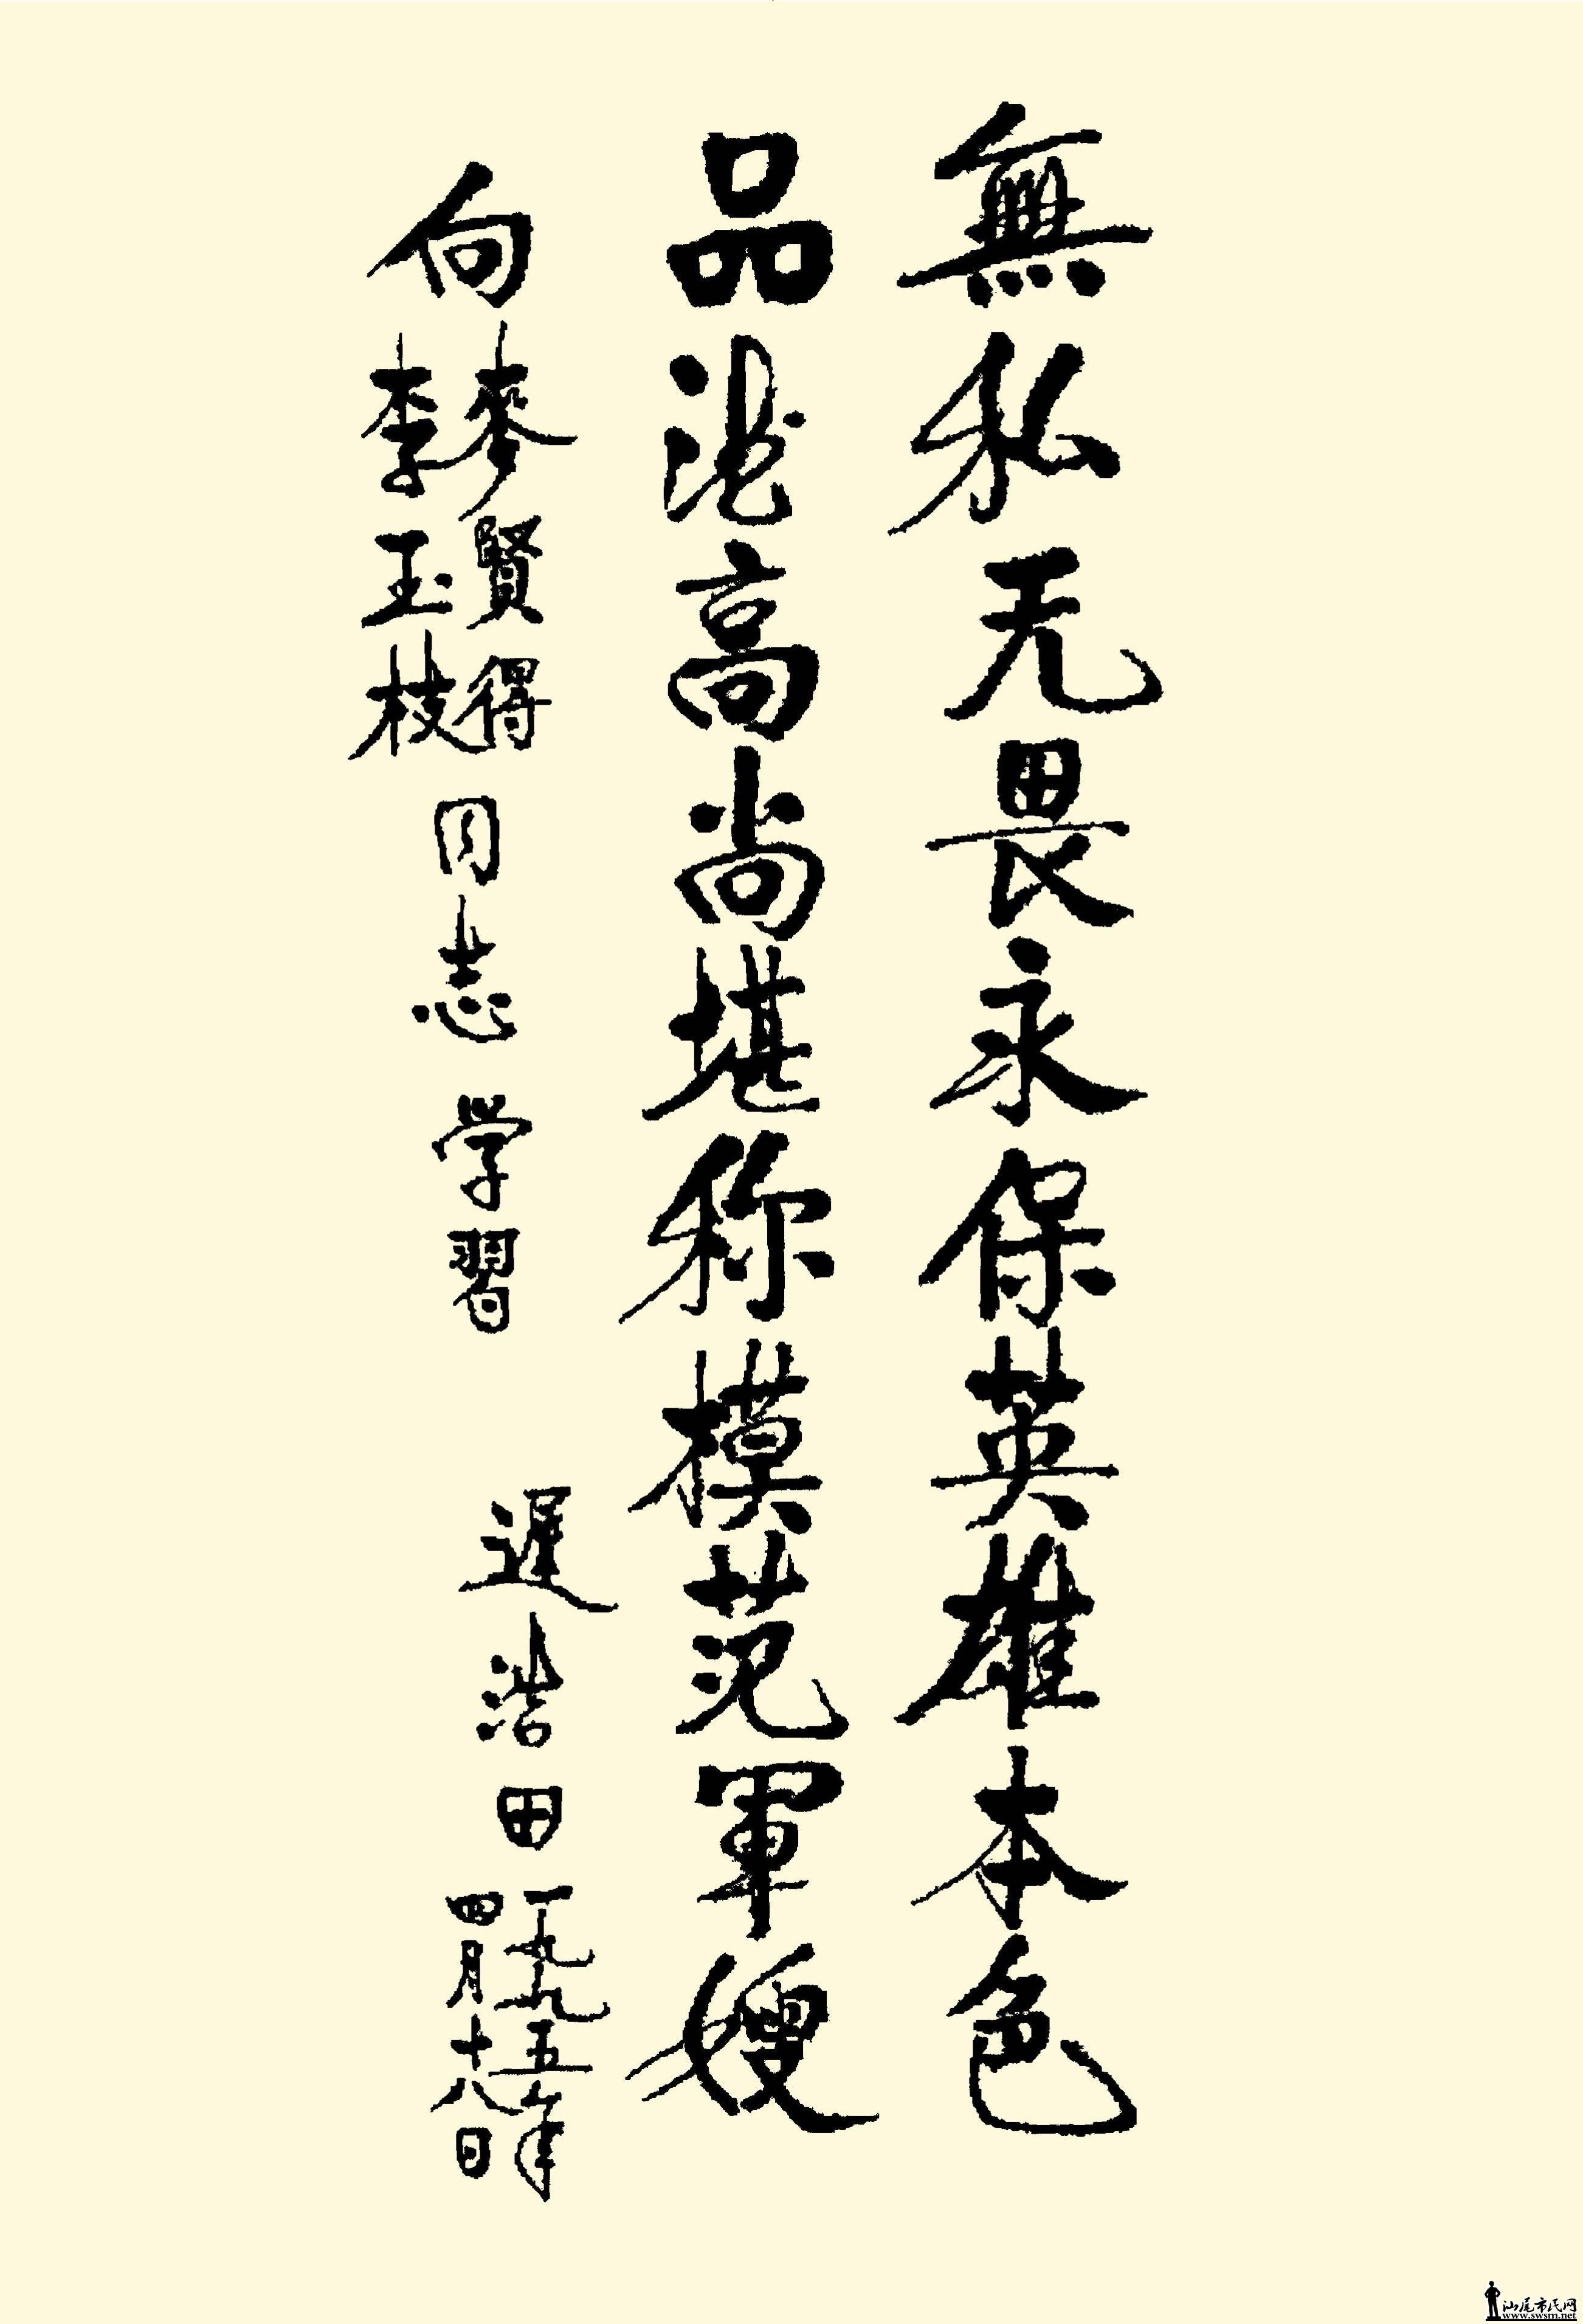 無私无畏永保英雄本色
品德高尚堪称模范軍嫂
向麥賢得李玉枝同志学習
遲浩田
一九九五年
四月十八日
汕尾市民网
www.swsm.net